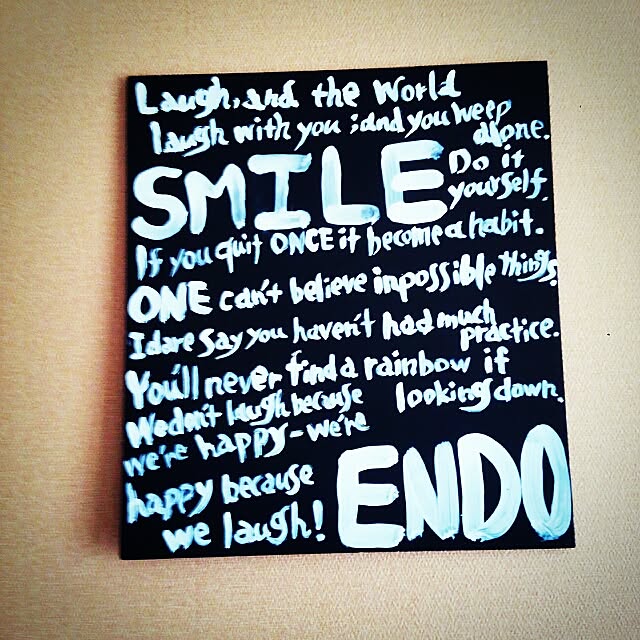 Laugh, and the World
laugh with you ; and you weep
alone.
SMILE Do it
yourself.
If you quit ONCE it become a habit.
ONE can't believe inpossible things.
I dare say you haven't had much
practice.
You'll never find a rainbow if
looking down.
We don't laugh because
we're happy - we're
happy because
we laugh!
ENDO